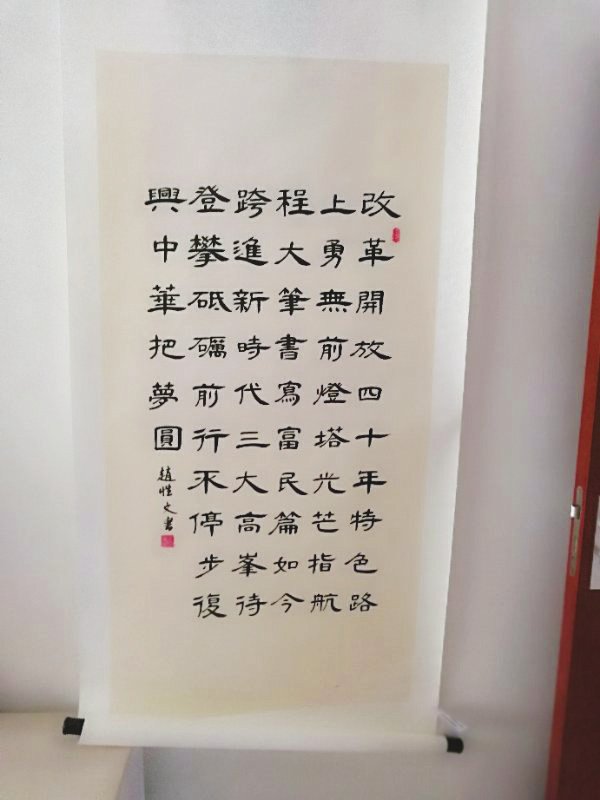 改革開放四十年特色路
上勇無前燈塔光芒指航
程大筆書寫富民篇如今
跨進新時代三大高峯待
登攀砥礪前行不停步復
興中華把夢圓
趙性文書